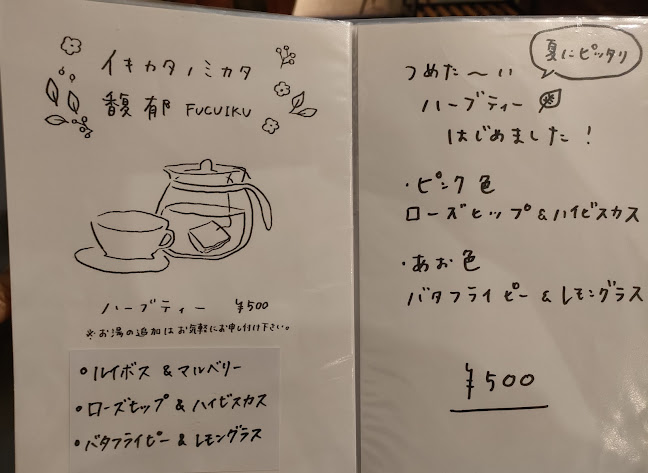 イキカタノミカタ
馥郁 FUCUIKU
ハーブティー ¥500
※お湯の追加はお気軽にお申し付け下さい。
・ルイボス & マルベリー
・ローズヒップ & ハイビスカス
・バタフライピー & レモングラス
夏にピッタリ
つめた〜い
ハーブティー
はじめました!
・ピンク色
ローズヒップ & ハイビスカス
・あお色
バタフライピー & レモングラス
¥500